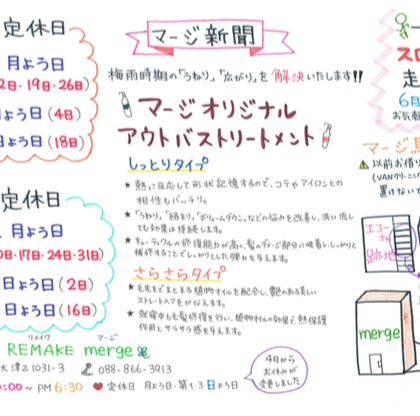 定休日
月よう日
2日・19日・26日)
よう日(4日)
よう日(18日)
定休日
月よう日
0日・17日・24日・31日)
日よう日(2日)
日よう日(16日)
マージ新聞
梅雨時期の「うねり」「広がり」を解決いたします!!
マージオリジナル
アウトバストリートメント
しっとりタイプ
★熱に反応して形状記憶するので、コテやアイロンとの
相性もバーチリ。
★「うねり」「絡まり」「ボリュームダウン」などの悩みを改善し、洗い流し
ても効果は持続します。
★キューティクルの修復能力が高く、髪のダメージ部分に吸着し、しっかりと
補修することで、しっかりとした弾力を与えます。
さらさらタイプ
★毛先までまとまる植物オイルを配合し、艶のある美しい
ストレートヘアをかなえます。
★就寝中も毛髪修復を行い、植物オイルの効果で、熱保護
作用とサラサラ感を与えます。
リメイク マージ
REMAKE merge
大津乙1031-3 088-866-3913
:00~PM6:30 ♥定休日 月よう日・第1・3日よう日
4月から
お休みが
変更しました
スロ
走
6月
お気軽
マージ馬
以前お借り
(VANクリーニン
置けないで
エコー
さん
merge